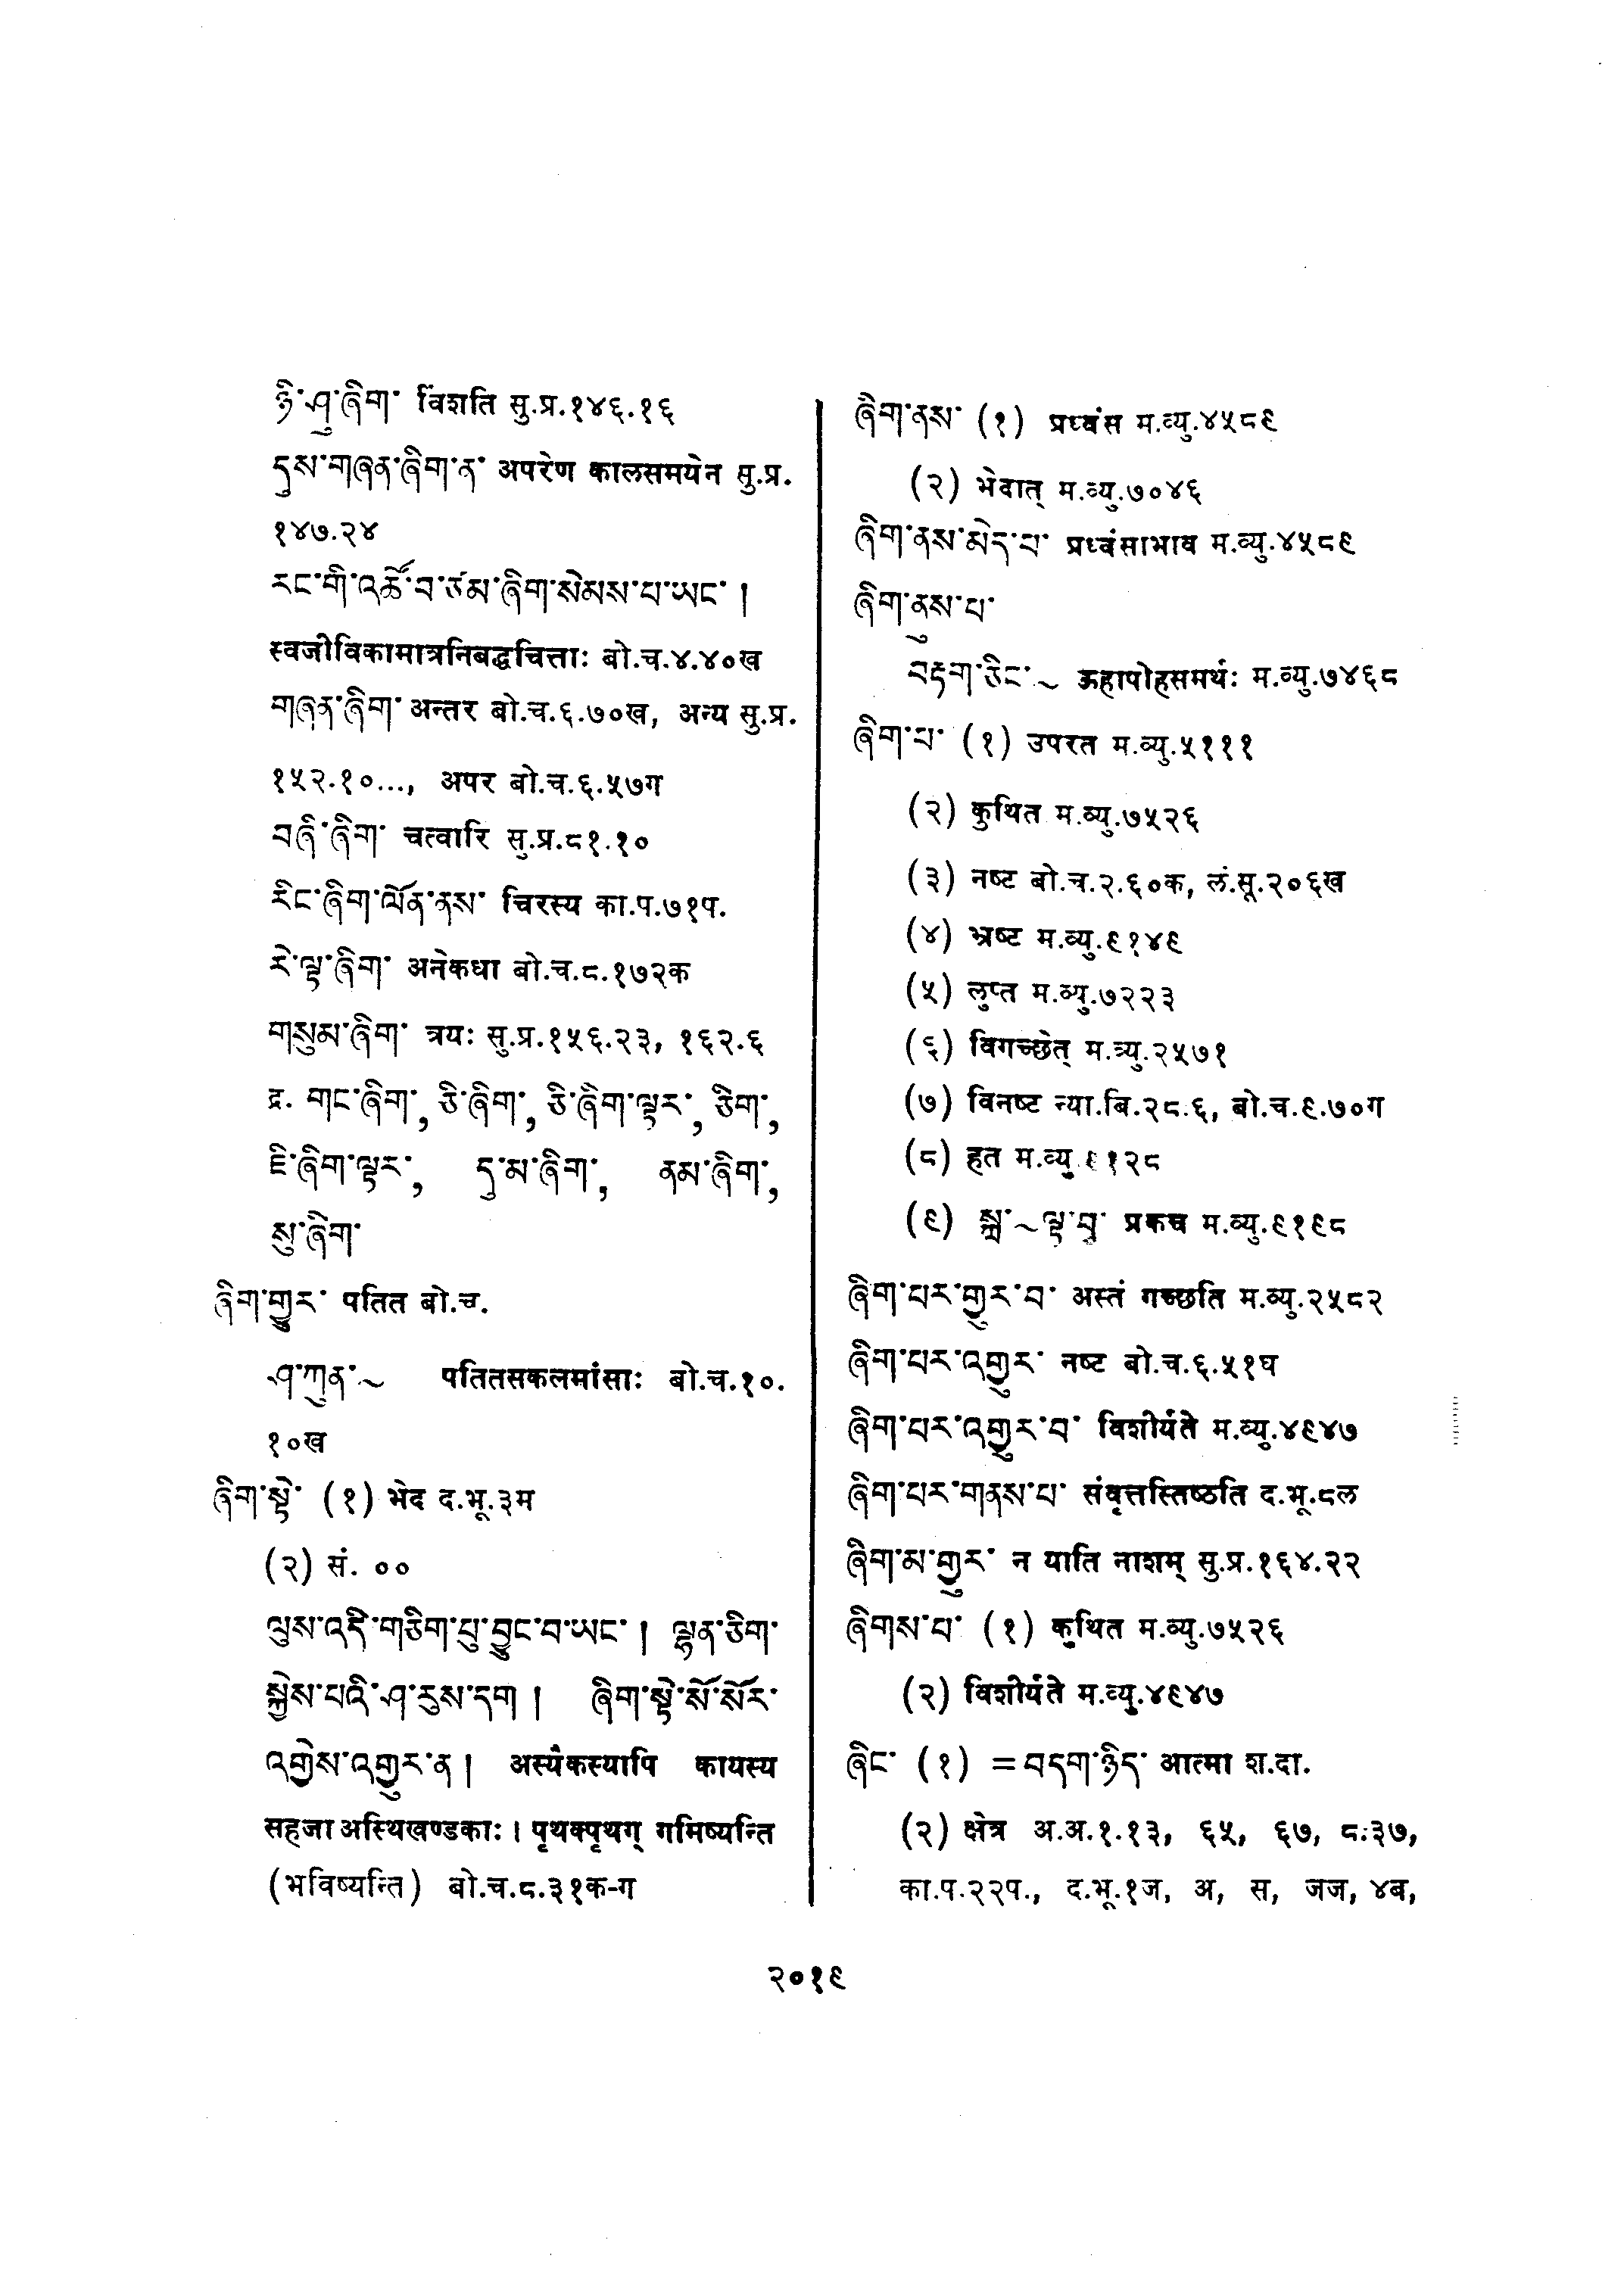 ཉི་ཤུ་ཞིག་ विंशति सु.प्र.१४६.१६
དུས་གཞན་ཞིག་ན་ अपरेण कालसमयेन सु.प्र.
१४७.२४
རང་གི་འཚོ་བ་ཙམ་ཞིག་སེམས་པ་ཡང་ །
स्वजीविकामात्रनिबद्धचित्ताः बो.च.४.४०ख
གཞན་ཞིག་ अन्तर बो.च.६.७०ख, अन्य सु.प्र.
१५२.१०..., अपर बो.च.६.५७ग
བཞི་ཞིག་ चत्वारि सु.प्र.८१.१०
རིང་ཞིག་ལོན་ནས་ चिरस्य का.प.७१प.
རེ་ལྟ་ཞིག་ अनेकधा बो.च.८.१७२क
གསུམ་ཞིག་ त्रयः सु.प्र.१५६.२३, १६२.६
द्र. གང་ཞིག་, ཅི་ཞིག་, ཅི་ཞིག་ལྟར་, ཅིག་,
ཇི་ཞིག་ལྟར་, དུ་མ་ཞིག་, ནམ་ཞིག་,
སུ་ཞིག་
ཞིག་གྱུར་ पतित बो.च.
ཤ་ཀུན་~ पतितसकलमांसाः बो.च.१०.
१०ख
ཞིག་སྟེ་ (१) भेद द.भू.३म
(२) सं. ००
ལུས་འདི་གཅིག་པུ་བྱུང་བ་ཡང་ । ལྷན་ཅིག་
སྐྱེས་པའི་ཤ་རུས་དག । ཞིག་སྟེ་སོ་སོར་
འགྱེས་འགྱུར་ན । अस्यैकस्यापि कायस्य
सहजा अस्थिखण्डकाः । पृथक्पृथग् गमिष्यन्ति
(भविष्यन्ति) बो.च.८.३१क-ग
ཞིག་ནས་ (१) प्रध्वंस म.व्यु.४५८९
(२) भेदात् म.व्यु.७०४६
ཞིག་ནས་མེད་པ་ प्रध्वंसाभाव म.व्यु.४५८९
ཞིག་ནུས་པ་
བརྟག་ཅིང་~ ऊहापोहसमर्थः म.व्यु.७४६८
ཞིག་པ་ (१) उपरत म.व्यु.५१११
(२) कुथित म.व्यु.७५२६
(३) नष्ट बो.च.२.६०क, लं.सू.२०६ख
(४) भ्रष्ट म.व्यु.९१४९
(५) लुप्त म.व्यु.७२२३
(६) विगच्छेत् म.व्यु.२५७१
(७) विनष्ट न्या.बि.२८.६, बो.च.९.७०ग
(८) हत म.व्यु.९१२८
(९) སྐྲ་~ལྟ་བུ་ प्रकच म.व्यु.९१९८
ཞིག་པར་གྱུར་བ་ अस्तं गच्छति म.व्यु.२५८२
ཞིག་པར་འགྱུར་ नष्ट बो.च.६.५१घ
ཞིག་པར་འགྱུར་བ་ विशीर्यते म.व्यु.४९४७
ཞིག་པར་གནས་པ་ संवृत्तस्तिष्ठति द.भू.८ल
ཞིག་མ་གྱུར་ न याति नाशम् सु.प्र.१६४.२२
ཞིགས་པ་ (१) कुथित म.व्यु.७५२६
(२) विशीर्यते म.व्यु.४९४७
ཞིང་ (१) =བདག་ཉིད་ आत्मा श.दा.
(२) क्षेत्र अ.अ.१.१३, ६५, ६७, ८.३७,
का.प.२२प., द.भू.१ज, अ, स, जज, ४ब,
२०१९